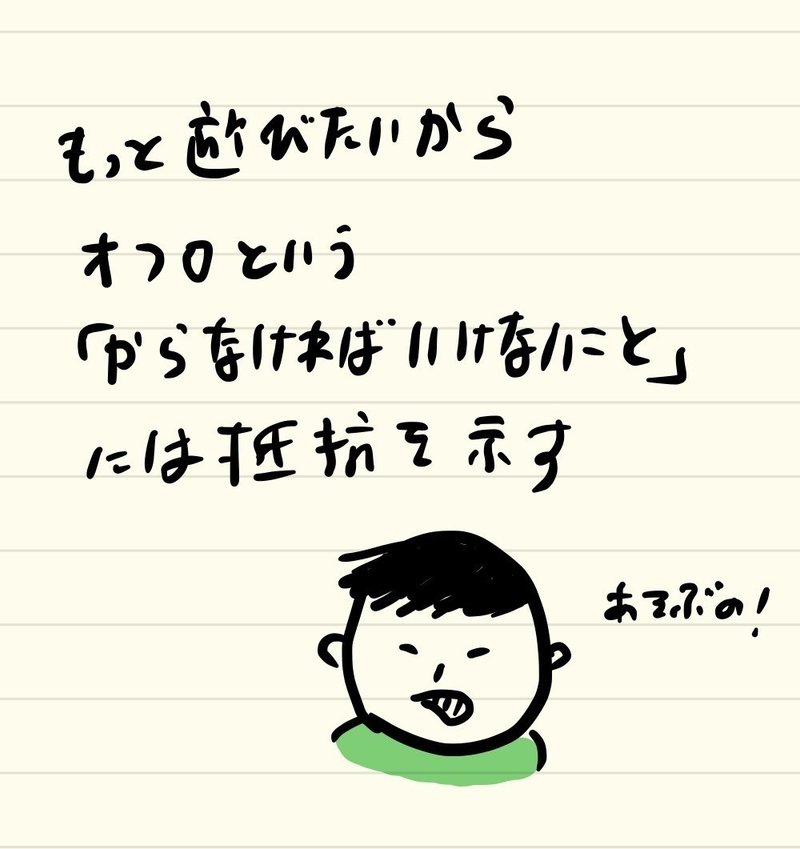 もっと遊びたいから
オフロという
「やらなければいけないこと」
には抵抗を示す
あそぶの！